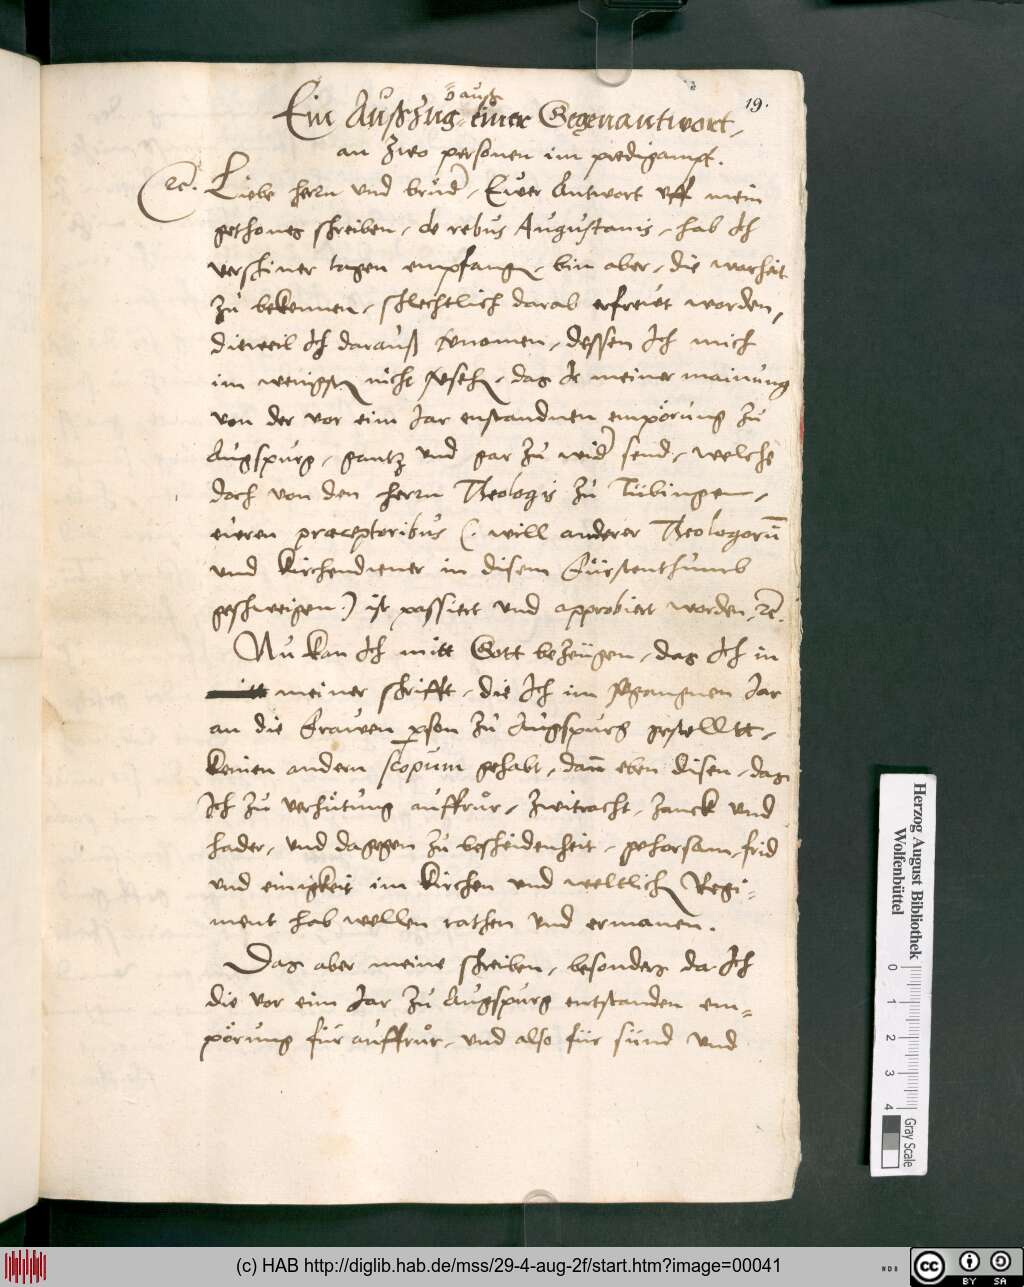 19.
Ein Außzug einer Gegenantwort,
an zwo personen im predigampt.
Liebe herrn und brüder, Ewer Antwort uff mein
gethones schreiben, de rebus Augustanis, hab Ich
verschiner tagen empfangen, bin aber, die warheit
zu bekennen, schlechtlich darab erfrewt worden,
dieweil Ich darauß vernomen, dessen Ich mich
im wenigsten nicht versehen, das Ir meiner mainung
von der vor eim Jar enstandnen empörung zu
Augspurg, gantz und gar zu wider seind, welche
doch von den herrn Theologis zu Tübingen,
eueren præceptoribus (: will anderer Theologorum
und Kirchendiener in disem Fürstenthumb
geschweigen:) ist passiert und approbiert worden, etc.
Nu kan Ich mitt Gott bezeugen, das Ich in
meiner schrifft, die Ich im vergangnen Jar
an die Frawen person zu Augspurg gestelltt,
keinen andern scopum gehabt, dann eben disen, das
Ich zu verhütung auffrur, zwitracht, zanck und
hader, und dagegen zu bescheidenheit, gehorsam, frid
und einigkeit im kirchen und weltlichen Regi-
ment hab wellen rathen und ermanen.
Das aber meine schreiben, besonders da Ich
die vor eim Jar zu Augspurg entstanden em-
pörung für auffrur, und also für sünd und
Herzog August Bibliothek
Wolfenbüttel
0 1 2 3 4
Gray Scale
(c) HAB http://diglib.hab.de/mss/29-4-aug-2f/start.htm?image=00041
cc BY SA